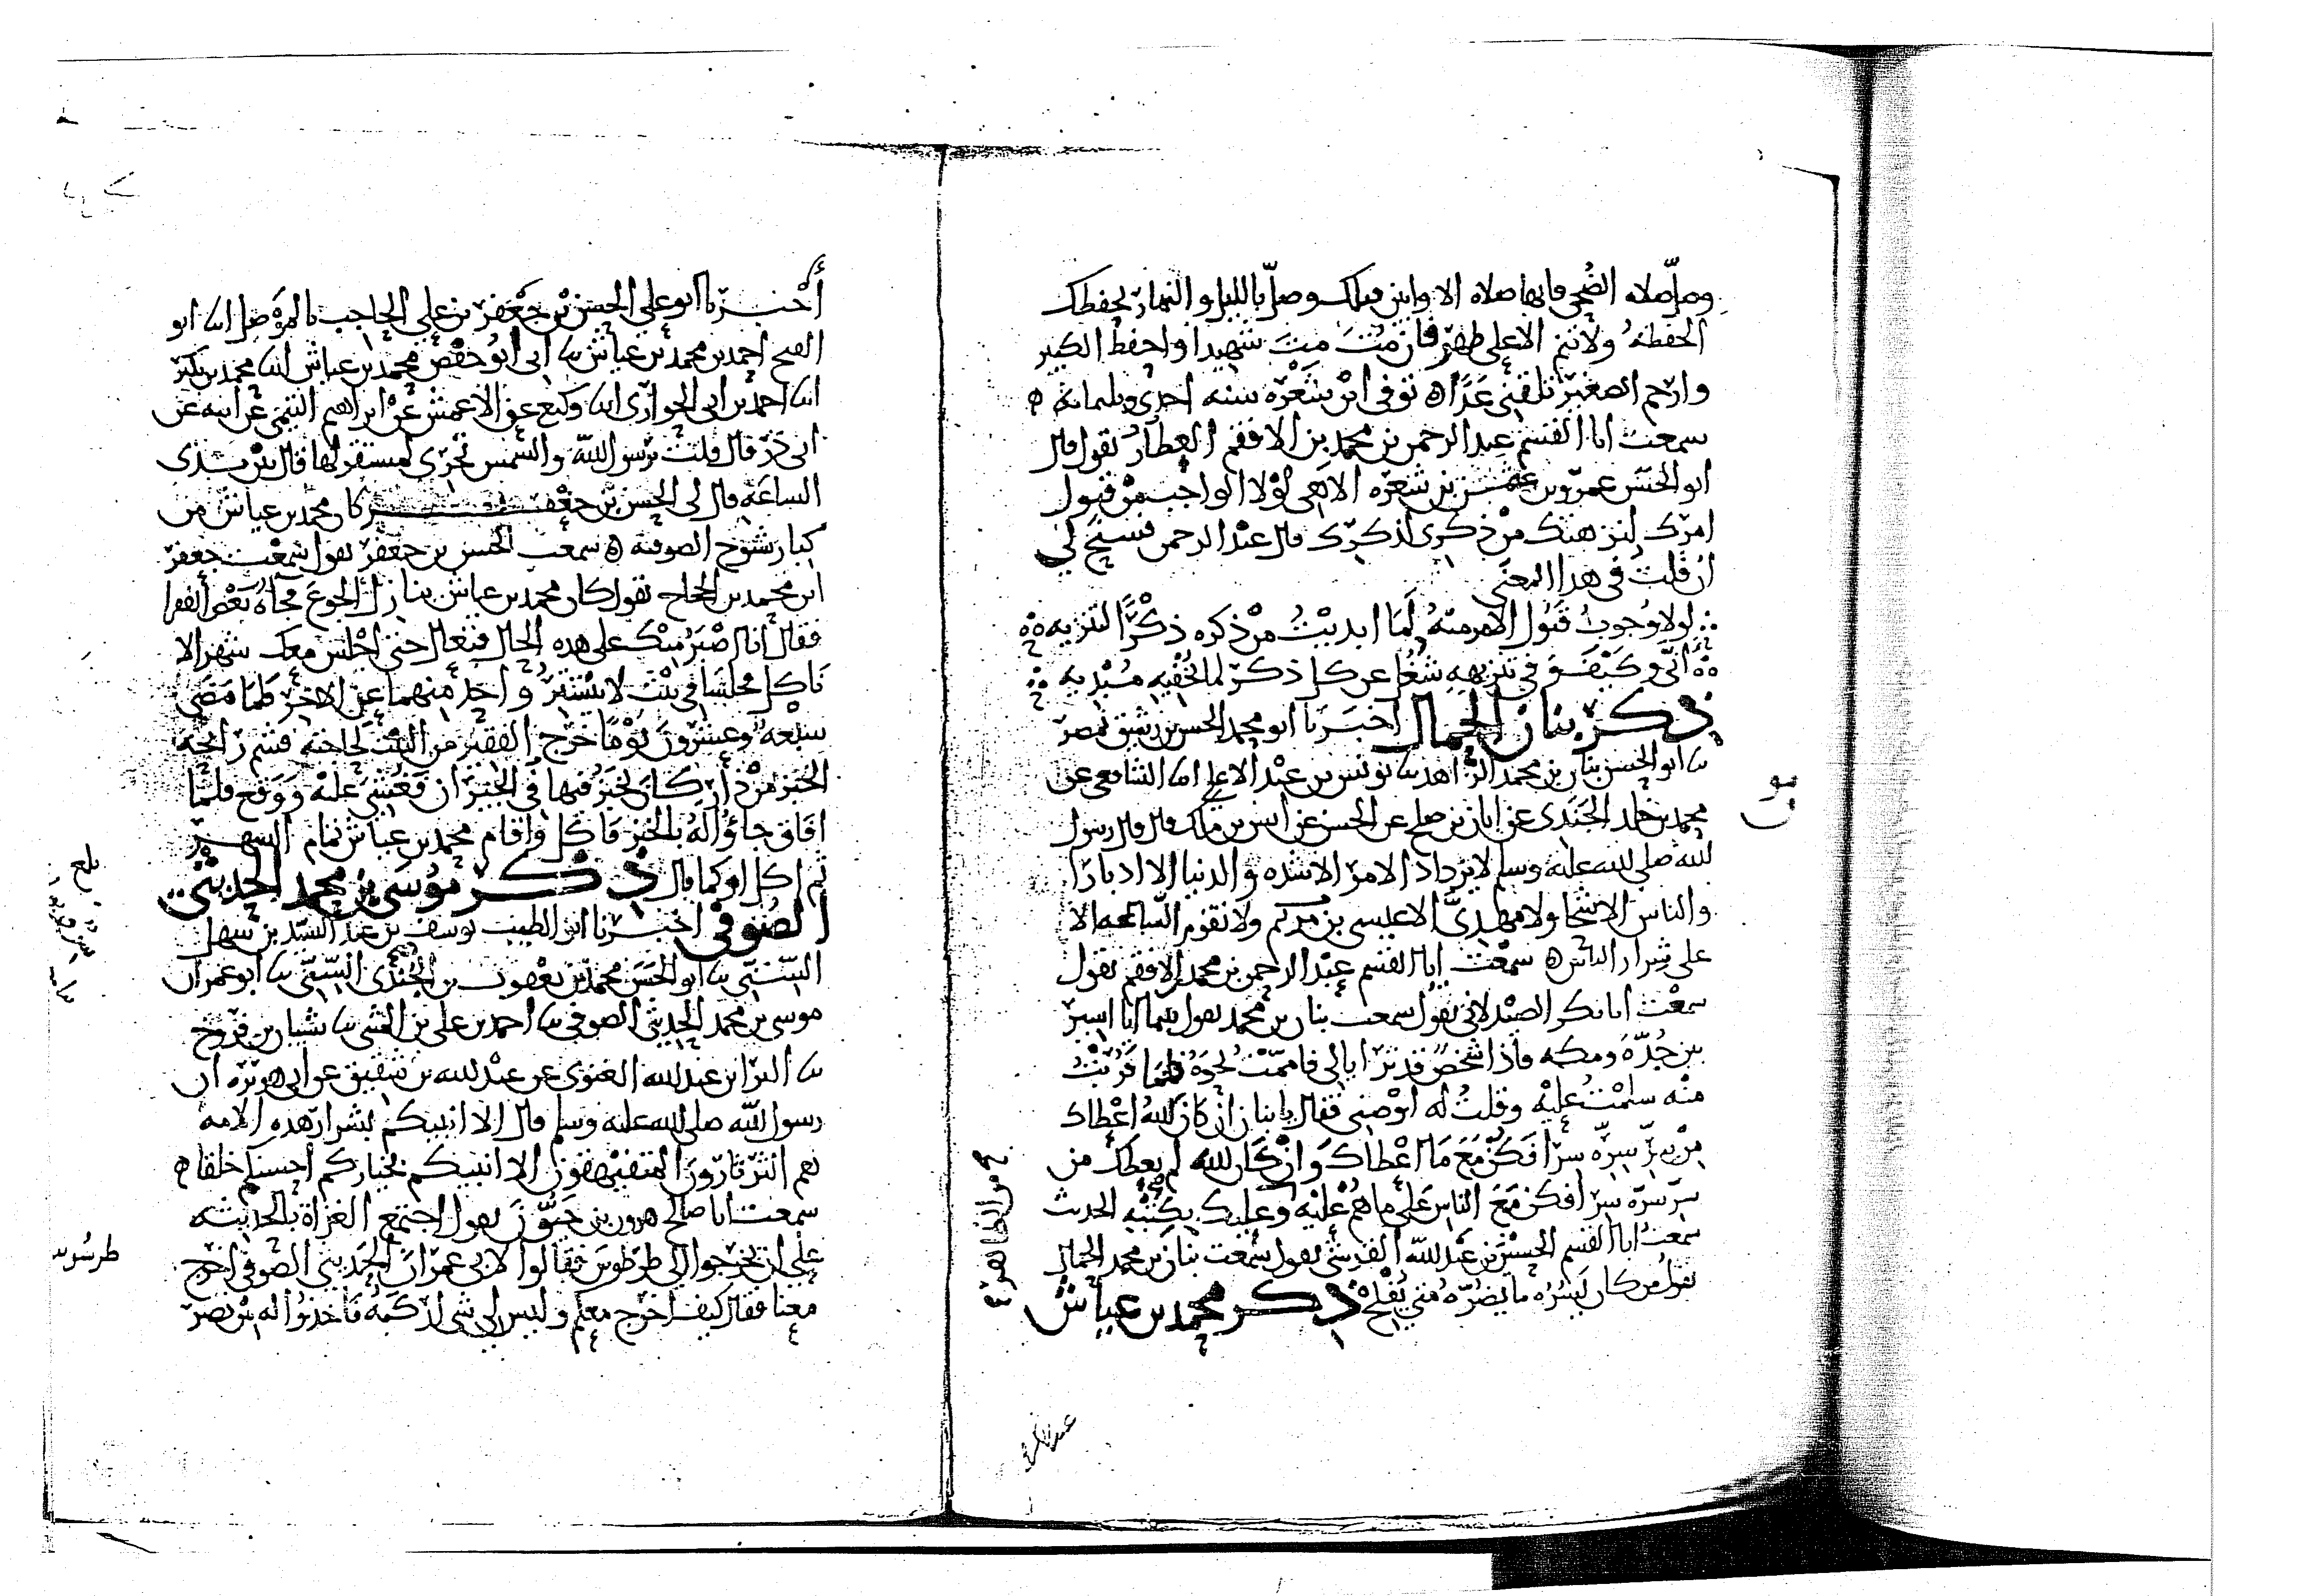 وصل صلاه الضحى فانها صلاه الاوابين قبلك وصل بالليل والنهار يحفظك
الحفظة ولا تنم الا على طهر فان مت مت شهيدا واحفظ الكبير
وارحم الصغير تلقني غدا ه توفي ابن شعره سنه احدى وثلثمائة ه
سمعت ابا القسم عبد الرحمن بن محمد بن الافقم العطار يقول قال
ابو الحسن عمرو بن عثمن بن شعره الاهي لولا الواجب من قبول
امرك لنزهتك من ذكرى لذكرك قال عبد الرحمن فسنح لي
ان قلت في هذا المعنى
لولا وجوب قبول الامر منه لما ابديت من ذكره ذكرا لتنزيه
انى وكيف وفي تنزيهه شغل عن كل ذكر لما تخفيه مبديه
ذكر بنان الجمال اخبرنا ابو محمد الحسن بن رشيق بمصر
ثنا ابو الحسن بنان بن محمد الزاهد ثنا يونس بن عبد الاعلى انا الشافعي عن
محمد بن خلد الجندي عن ابان بن صلح عن الحسن عن انس بن ملك قال قال رسول
الله صلى الله عليه وسلم لا يزداد الامر الا شده والدنيا الا ادبارا
والناس الا شحا ولا مهدي الا عيسى بن مريم ولا تقوم الساعه الا
على شرار الناس ه سمعت ابا القسم عبد الرحمن بن محمد الافقم يقول
سمعت ابا بكر الصيدلاني يقول سمعت بنان بن محمد يقول بينما انا اسير
بين جدة ومكه فاذا شخص قد تراءا لي فاممت نحوه فلما قربت
منه سلمت عليه وقلت له اوصني فقال يا بنان ان كان الله اعطاك
من سر سره سرا فكن مع ما اعطاك وان كان الله لم يعطك من
سر سره سرا فكن مع الناس على ما هم عليه وعليك بكتبه الحديث
سمعت ابا القسم الحسن بن عبد الله القرشي يقول سمعت بنان بن محمد الجمال
يقول من كان يسره ما يضره متى يفلح ه ذكر محمد بن عياش
من الظاهرية
اخبرنا ابو علي الحسن بن جعفر بن علي الحاجب بالموصل انا ابو
الفتح احمد بن محمد بن عياش ثنا ابي ابو حفص محمد بن عياش انا محمد بن بكير
انا احمد بن ابي الحواري انا وكيع عن الاعمش عن ابراهيم التيمي عن ابيه عن
ابي ذر قال قلت يرسول الله والشمس تجري لمستقر لها قال بين يدي
الساعه قال لي الحسن بن جعفر كان محمد بن عياش من
كبار شيوخ الصوفيه ه سمعت الحسن بن جعفر يقول سمعت جعفر
ابن محمد بن الحاج يقول كان محمد بن عياش ينازل الجوع فجاه بعض الفقرا
فقال انا اصبر منك على هذه الحال فتعال حتى اجلس معك شهرا لا
ناكل فجلسا في بيت لا يستتر واحد منهما عن الاخر فلما مضى
سبعه وعشرون يوما خرج الفقير من البيت لحاجته فشم رايحة
الخبز من دار كان يخبز فيها في الجيران فغشي عليه ووقع فلما
افاق جاؤا له بالخبز فاكل واقام محمد بن عياش تمام الشهر
ثم اكل او كما قال ذكر موسى بن محمد الحديثي
الصوفي اخبرنا ابو الطيب يوسف بن عبد السيد بن سهل
السني ثنا ابو الحسن محمد بن يعقوب بن الجندي السني ثنا ابو عمران
موسى بن محمد الحديثي الصوفي ثنا احمد بن علي بن المثنى ثنا شيبان بن فروخ
ثنا البرا بن عبد الله الغنوي عن عبد الله بن شقيق عن ابي هريره ان
رسول الله صلى الله عليه وسلم قال الا انبيكم بشرار هذه الامة
هم الثرثارون المتفيهقون الا انبيكم بخياركم احسنكم خلقا ه
سمعت ابا صالح هرون بن حيون يقول اجتمع الغزاة بالحديثه
على ان يخرجوا الى طرطوس فقالوا لابي عمران الحديثي الصوفي اخرج
معنا فقال كيف اخرج معكم وليس لي شي اركبه فاخذوا له برنصر
بلغ